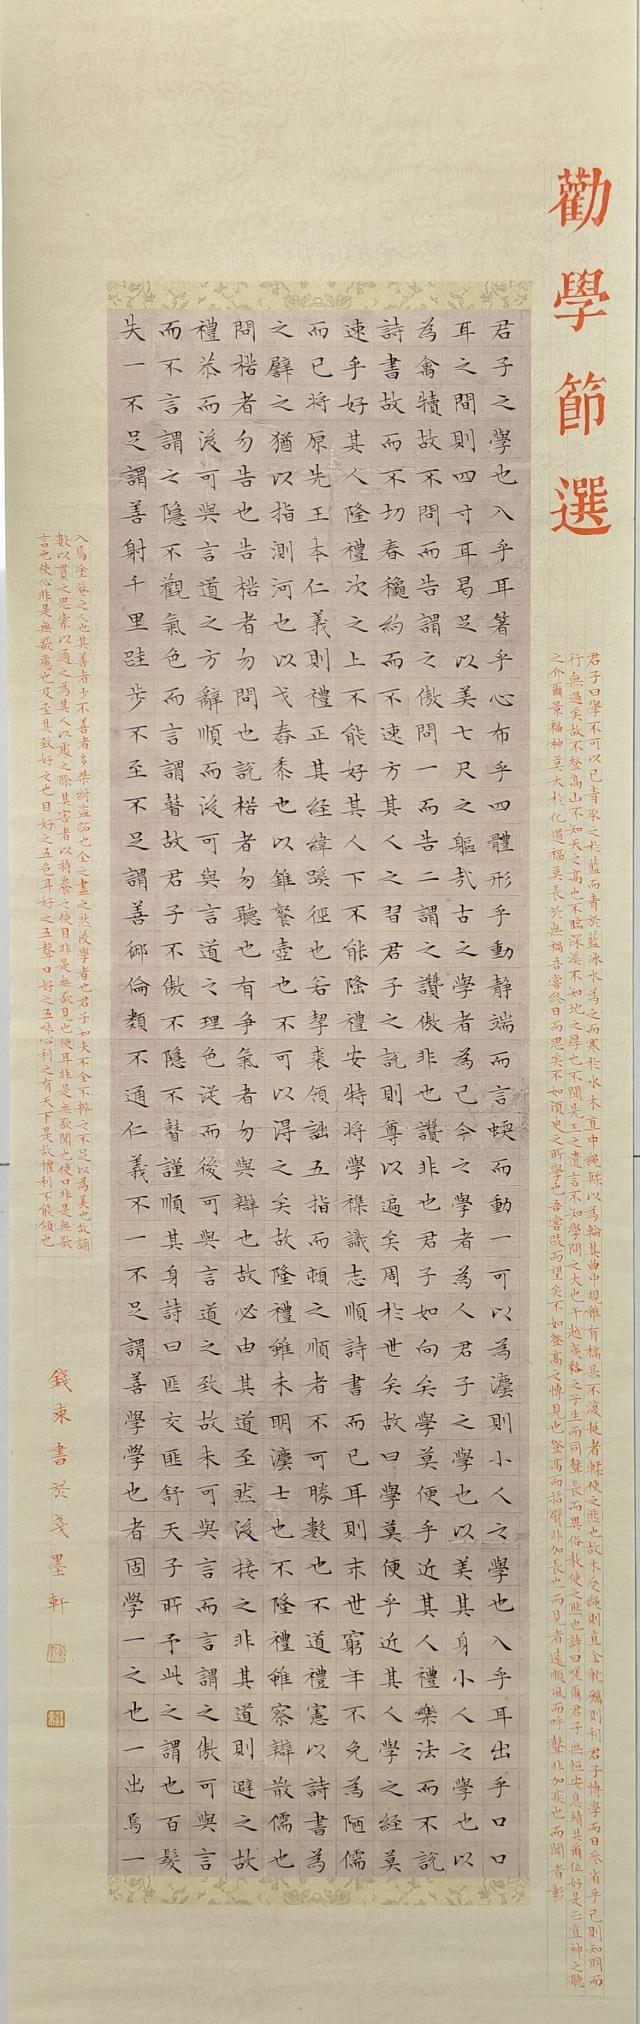 勸學節選
君子曰學不可以已青取之於藍而青於藍冰水為之而寒於水木直中繩輮以為輪其曲中規雖有槁暴不復挺者輮使之然也故木受繩則直金就礪則利君子博學而日參省乎己則知明而
行無過矣故不登高山不知天之高也不臨深溪不知地之厚也不聞先王之遺言不知學問之大也干越夷貉之子生而同聲長而異俗教使之然也詩曰嗟爾君子無恒安息靖共爾位好是正直神之聽
之介爾景福神莫大於化道福莫長於無禍吾嘗終日而思矣不如須臾之所學也吾嘗跂而望矣不如登高之博見也登高而招臂非加長也而見者遠順風而呼聲非加疾也而聞者彰
君子之學也入乎耳箸乎心布乎四體形乎動靜端而言蝡而動一可以為灋則小人之學也入乎耳出乎口口
耳之間則四寸耳曷足以美七尺之軀哉古之學者為己今之學者為人君子之學也以美其身小人之學也以
為禽犢故不問而告謂之傲問一而告二謂之讚傲非也讚非也君子如向矣學莫便乎近其人禮樂法而不說
詩書故而不切春穐約而不速方其人之習君子之說則尊以遍矣周於世矣故曰學莫便乎近其人學之經莫
速乎好其人隆禮次之上不能好其人下不能隆禮安特將學襍識志順詩書而已耳則末世窮年不免為陋儒
而已將原先王本仁義則禮正其經緯蹊徑也若挈裘領詘五指而頓之順者不可勝數也不道禮憲以詩書為
之譬之猶以指測河也以戈舂黍也以錐餐壺也不可以得之矣故隆禮雖未明灋士也不隆禮雖察辯散儒也
問楛者勿告也告楛者勿問也說楛者勿聽也有爭氣者勿與辯也故必由其道至然後接之非其道則避之故
禮恭而後可與言道之方辭順而後可與言道之理色從而後可與言道之致故未可與言而言謂之傲可與言
而不言謂之隱不觀氣色而言謂瞽故君子不傲不隱不瞽謹順其身詩曰匪交匪舒天子所予此之謂也百發
失一不足謂善射千里跬步不至不足謂善御倫類不通仁義不一不足謂善學學也者固學一之也一出焉一
入焉塗巷之人也其善者少不善者多桀紂盜跖也全之盡之然後學者也君子知夫不全不粹之不足以為美也故誦
數以貫之思索以通之為其人以處之除其害者以持養之使目非是無欲見也使耳非是無欲聞也使口非是無欲
言也使心非是無欲慮也及至其致好之也目好之五色耳好之五聲口好之五味心利之有天下是故權利不能傾也
錢東書於戔墨軒